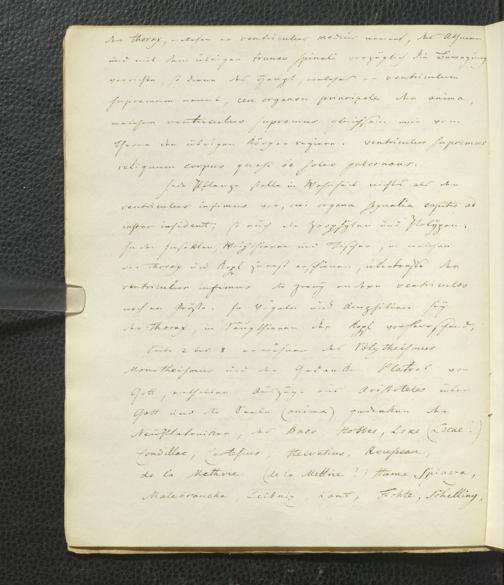 den thorax, welchen er ventriculus medius nennt, das Athmen
und mit dem übrigen trunco spinali vorzüglich die Bewegung
verrichte, so diene der Kopf, welchen er ventriculum
supremum nennt, als organon principale der anima,
welchen ventriculus supremus gleichsam wie vom
Throne den übrigen Körper regiere. ventriculus supremus
reliquum corpus quasi de solio gubernans.
Jede Pflanze stelle in Wahrheit nichts als den
ventriculus infimus vor, cui organa sexualia capitis ad
instar insident; so auch die Zoophyten und Polypen.
In den Insekten, Würmern und Fischen, in welchen
der thorax und Kopf zuerst erscheinen, übertreffe der
ventriculus infimus die zwey andern ventriculos
noch an Größe. In Vögeln und Amphibien sey
der thorax, in Säugthieren der Kopf vorherrschend,
Seite 2 bis 8 erwähnen des Polytheismus
Monotheismus und der Gedanken Platos von
Gott, enthalten Auszüge aus Aristoteles über
Gott und die Seele (anima) gedenken der
Neuplatoniker, des Baco Hobbes, Loke (Locke?)
Condillac, Cartesius, Helvetius, Rousseau,
de la Methrie (de la Mettrie?) Hume, Spinoza,
Malebranche, Leibniz Kant, Fichte, Schelling,